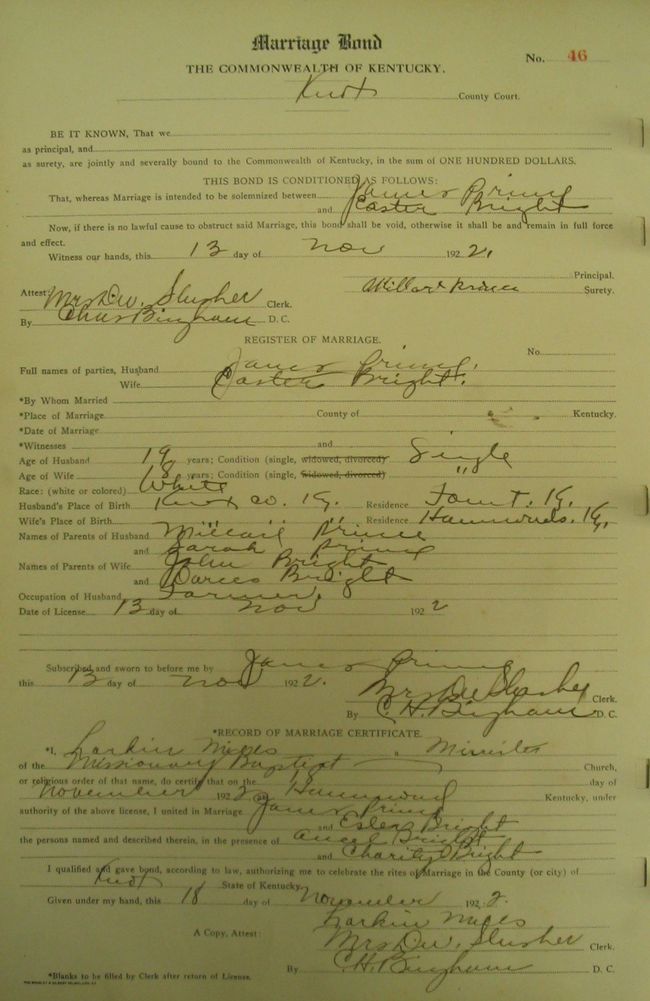 Marriage Bond
No. 46
THE COMMONWEALTH OF KENTUCKY.
Knox County Court.
BE IT KNOWN, That we
as principal, and
as surety, are jointly and severally bound to the Commonwealth of Kentucky, in the sum of ONE HUNDRED DOLLARS.
THIS BOND IS CONDITIONED AS FOLLOWS:
That, whereas Marriage is intended to be solemnized between James Prince
and Easter Bright
Now, if there is no lawful cause to obstruct said Marriage, this bond shall be void, otherwise it shall be and remain in full force
and effect.
Witness our hands, this 13 day of Nov 1922.
Principal.
Prince Surety.
Attest: Mrs D.W. Slusher Clerk.
By Chas Bingham D. C.
REGISTER OF MARRIAGE.
No.
Full names of parties, Husband James Prince.
Wife Easter Bright.
*By Whom Married
*Place of Marriage County of Kentucky.
*Date of Marriage
*Witnesses and
Age of Husband 19 years; Condition (single, widowed, divorced) Single
Age of Wife 18 years; Condition (single, Widowed, divorced) "
Race: (white or colored) White
Husband's Place of Birth Knox Co. Ky. Residence Fount. Ky.
Wife's Place of Birth " " " Residence Ky.
Names of Parents of Husband Prince
and Sarah Prince
Names of Parents of Wife John Bright
and Bright
Occupation of Husband Farmer.
Date of License 13 day of Nov 1922
Subscribed and sworn to before me by James Prince
this 13 day of Nov 1922.
Mrs D.W. Slusher Clerk.
By C. H. Bingham D. C.
*RECORD OF MARRIAGE CERTIFICATE.
*I, Larkin Mills a Minister
of the Missionary Baptept Church,
or religious order of that name, do certify that on the 18 day of
November 1922 at Kentucky, under
authority of the above license, I united in Marriage James Prince
and Bright
the persons named and described therein, in the presence of Bright
and Charity Bright
I qualified and gave bond, according to law, authorizing me to celebrate the rites of Marriage in the County (or city) of
Knox State of Kentucky.
Given under my hand, this 18 day of November 1922.
Larkin Mills
A Copy, Attest: Mrs D.W. Slusher Clerk.
By C.H. Bingham D. C.
*Blanks to be filled by Clerk after return of License.